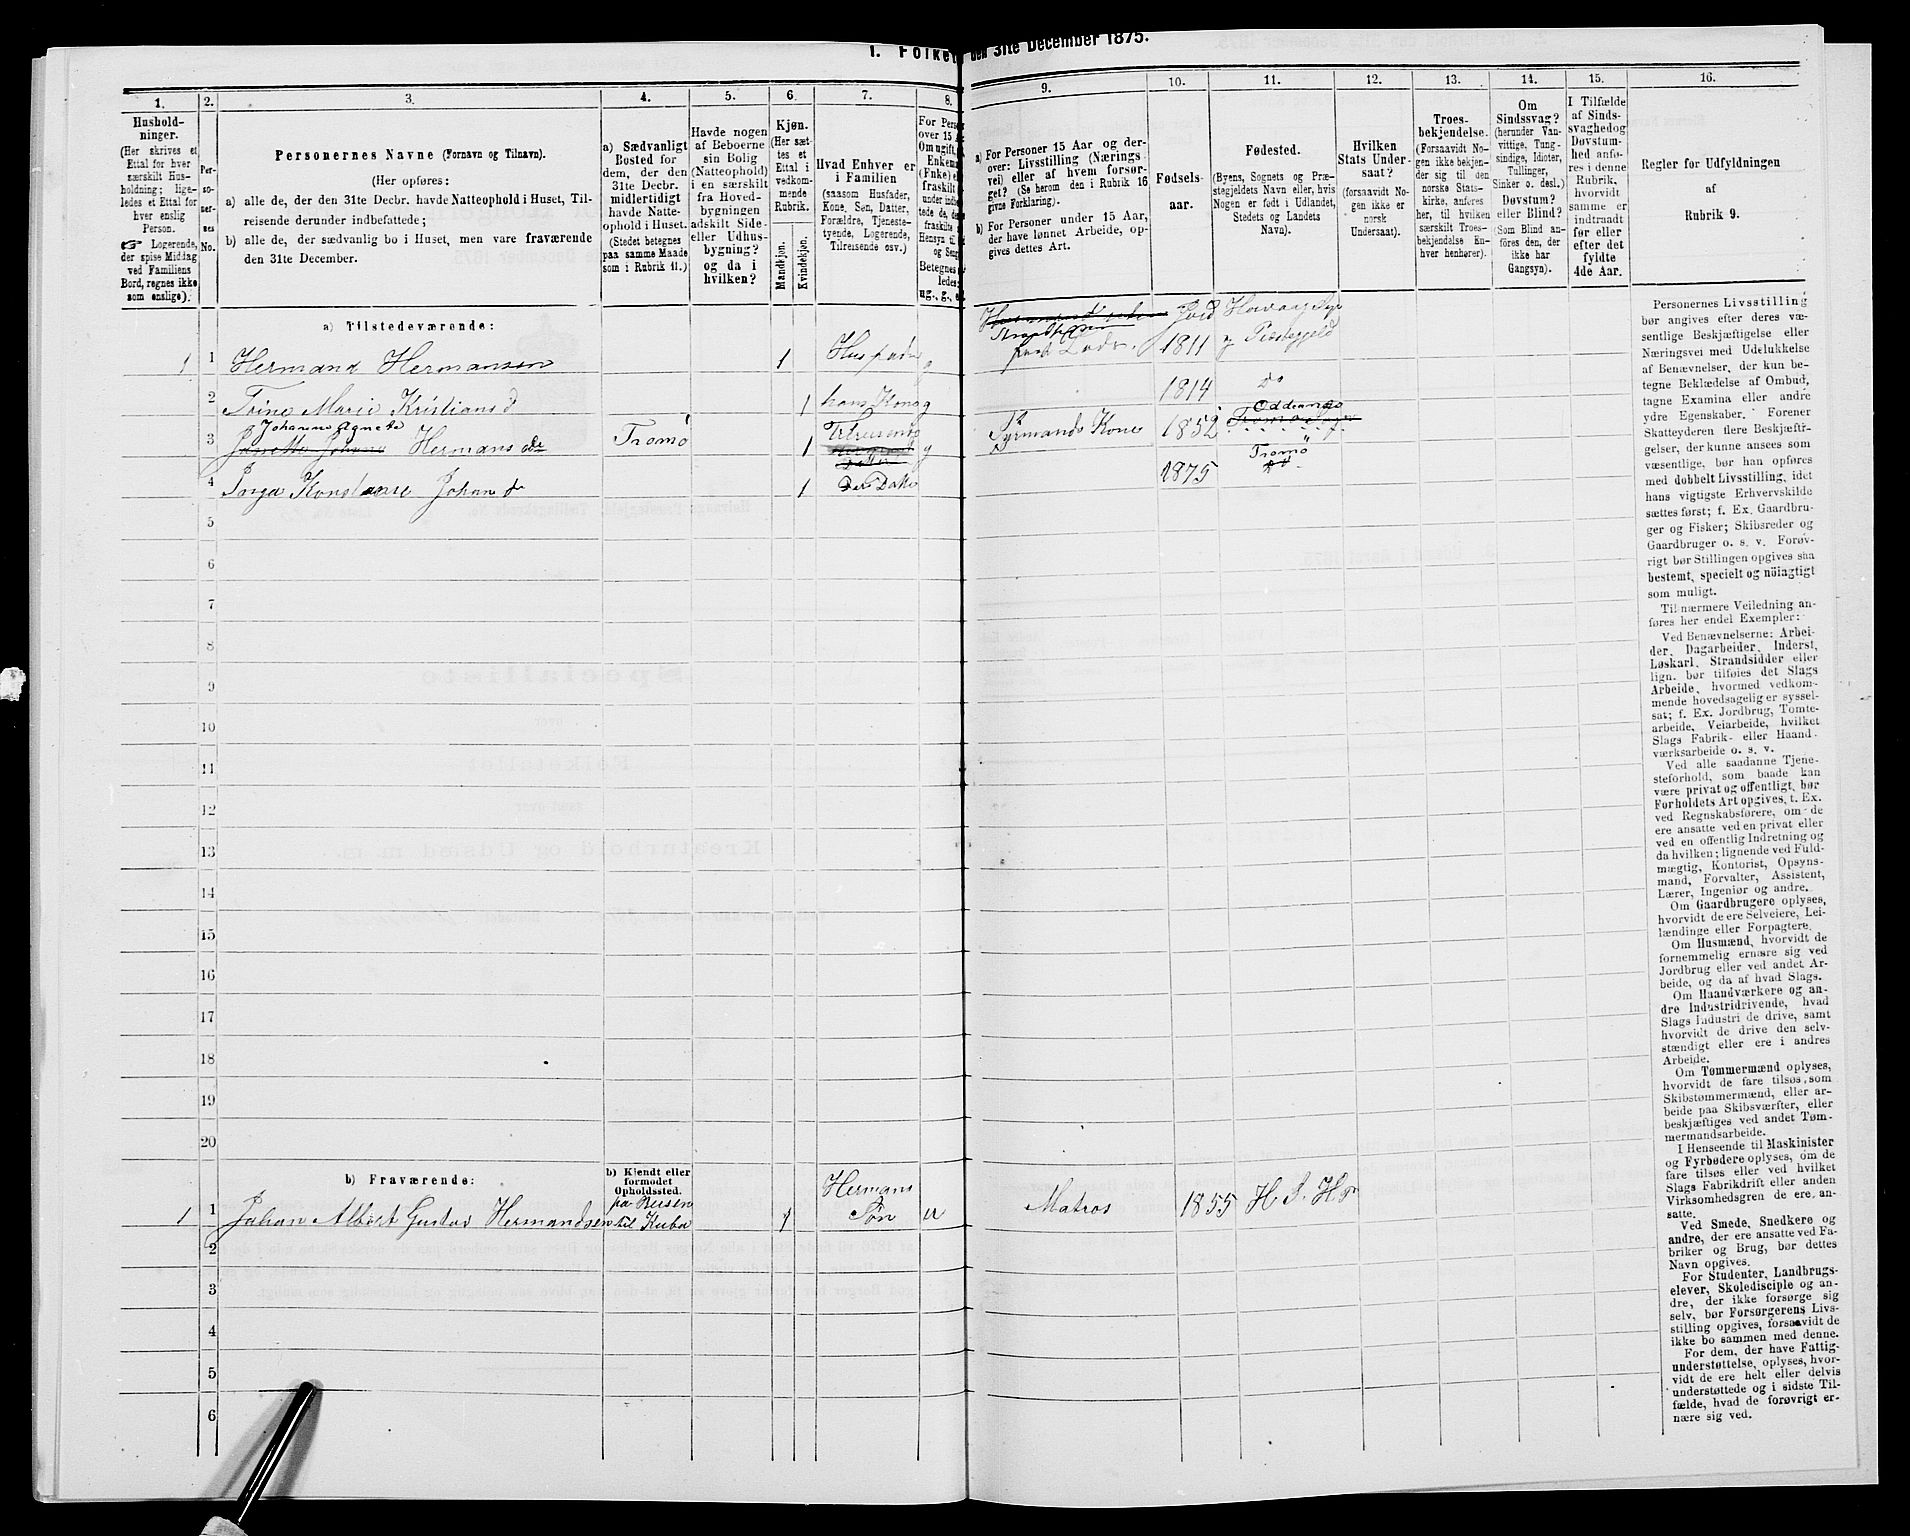 1. Folket
den 31te December 1875.
1.
Hushold-
ninger.
(Her skrives et
Ettal for hver
særskilt Hus-
holdning; lige-
ledes et Ettal for
hver enslig
Person.
☞ Logerende,
der spise Middag
ved Familiens
Bord, regnes ikke
som enslige).
2.
Per-
so-
ner-
nes
No.
3.
Personernes Navne (Fornavn og Tilnavn).
(Her opføres:
a) alle de, der den 31te Decbr. havde Natteophold i Huset, Til-
reisende derunder indbefattede;
b) alle de, der sædvanlig bo i Huset, men vare fraværende
den 31te December.
4.
a) Sædvanligt
Bosted for
dem, der den
31te Decbr.
midlertidigt
havde Natte-
ophold i Huset.
(Stedet betegnes
paa samme Maade
som i Rubrik 11.)
5.
Havde nogen
af Beboerne
sin Bolig
(Natteophold)
i en særskilt
fra Hoved-
bygningen
adskilt Side-
eller Udhus-
bygning?
og da i
hvilken?
6.
Kjøn.
(Her sæt-
tes et
Ettal i
vedkom-
mende
Rubrik.
Mandkjøn.
Kvindekjøn.
7.
Hvad Enhver er
i Familien
(saasom Husfader,
Kone, Søn, Datter,
Forældre, Tjeneste-
tyende, Logerende,
Tilreisende osv.)
8.
9.
a) For Personer 15 Aar og der-
over: Livsstilling (Nærings-
vei) eller af hvem forsør-
get? (Se herom den i Rubrik 16
givne Forklaring).
b) For Personer under 15 Aar,
der have lønnet Arbeide, op-
gives dettes Art.
10.
Fødsels-
aar.
11.
Fødested.
(Byens, Sognets og Præ-
stegjeldets Navn eller, hvis
Nogen er født i Udlandet,
Stedets og Landets
Navn).
12.
Hvilken
Stats Under-
saat?
(forsaavidt No-
gen ikke er
norsk
Undersaat).
13.
Troes-
bekjendelse.
(Forsaavidt No-
gen ikke bekjen-
der sig til den
norske Stats-
kirke, anføres
her, til hvilken
særskilt Troes-
bekjendelse En-
hver henhører).
14.
Om
Sindssvag?
(herunder Van-
vittige, Tung-
sindige, Idioter,
Tullinger,
Sinker o. desl.)
Døvstum?
eller Blind?
(Som Blind an-
føres den, der
ikke har
Gangsyn).
15.
I Tilfælde
af Sinds-
svaghed og
Døvstum-
hed anfø-
res i denne
Rubrik,
hvorvidt
samme er
indtraadt
før eller
efter det
fyldte
4de Aar.
16.
Regler for Udfyldningen
af
Rubrik 9.
a) Tilstedeværende:
1 1 Hermand Hermansen 1 Husfader g 1811
2 Trine Marie Kristians d 1 hans Kone g 1814 do
3 Hermans Tromø 1 g Syrmands Kone 1852
4 Konstanse Johan d 1 1875 Tromö
5
6
7
8
9
10
11
12
13
14
15
16
17
18
19
20
b) Fraværende:
b) Kjendt eller
formodet
Opholdssted.
1 1 Johan Albert Gustav Hermandsen paa Reisen til Kuba 1 Hermans Søn u Matros 1855 H S. H Pr
2
3
4
5
6
Personernes Livsstilling
bør angives efter deres væ-
sentlige Beskjæftigelse eller
Næringsvei med Udelukkelse
af Benævnelser, der kun be-
tegne Beklædelse af Ombud,
tagne Examina eller andre
ydre Egenskaber. Forener
Skatteyderen flere Beskjæfti-
gelser, der kunne ansees som
væsentlige, bør han opføres
med dobbelt Livsstilling, idet
hans vigtigste Erhvervskilde
sættes først; f. Ex. Gaardbru-
ger og Fisker; Skibsreder og
Gaardbruger o. s. v. Forøv-
rigt bør Stillingen opgives saa
bestemt, specielt og nøiagtigt
som muligt.
Til nærmere Veiledning an-
føres her endel Exempler:
Ved Benævnelserne: Arbei-
der, Dagarbeider, Inderst,
Løskarl, Strandsidder eller
lign. bør tilføies det Slags
Arbeide, hvormed vedkom-
mende hovedsagelig er syssel-
sat; f. Ex. Jordbrug, Tomte-
arbeide, Veiarbeide, hvilket
Slags Fabrik- eller Haand-
værksarbeide o. s. v.
Ved alle saadanne Tjene-
steforhold, som baade kan
være privat og offentligt, bør
Forholdets Art opgives, t. Ex.
ved Regnskabsførere, om de
ere ansatte ved en privat eller
ved en offentlig Indretning og
da hvilken; lignende ved Fuld-
mægtig, Kontorist, Opsyns-
mand, Forvalter, Assistent,
Lærer, Ingeniør og andre.
Om Gaardbrugere oplyses,
hvorvidt de ere Selveiere, Lei-
lændinge eller Forpagtere.
Om Husmænd, hvorvidt de
fornemmelig ernære sig ved
Jordbrug eller ved andet Ar-
beide, og da af hvad Slags.
Om Haandværkere og an-
dre Industridrivende, hvad
Slags Industri de drive, samt
hvorvidt de drive den selv-
stændigt eller ere i andres
Arbeide.
Om Tømmermænd oplyses,
hvorvidt de fare tilsøs som
Skibstømmermænd, eller ar-
beide paa Skibsværfter, eller
beskjæftiges ved andet Tøm-
mermandsarbeide.
I Henseende til Maskinister
og Fyrbødere oplyses, om de
fare tilsøs eller ved hvilket
Slags Fabrikdrift eller anden
Virksomhedsgren de ere an-
satte.
Ved Smede, Snedkere og
andre, der ere ansatte ved Fa-
briker og Brug, bør dettes
Navn opgives.
For Studenter, Landbrugs-
elever, Skoledisciple og an-
dre, der ikke forsørge sig
selv, bør Forsørgerens Livs-
stilling opgives, forsaavidt de
ikke bo sammen med denne.
For dem, der have Fattig-
understøttelse, oplyses, hvor-
vidt de ere helt eller delvis
understøttede og i sidste Til-
fælde, hvad de forøvrigt er-
nære sig ved.